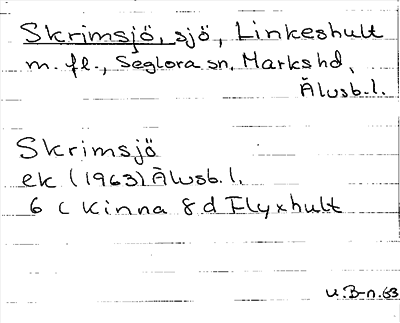 Skrimsjö, sjö, Linkeshult
m. fl., Seglora sn, Marks hd,
Älvsb. l.
Skrimsjö
ek (1963) Älvsb. l.
6 C Kinna 8 d Flyxhult
U. B-n. 63